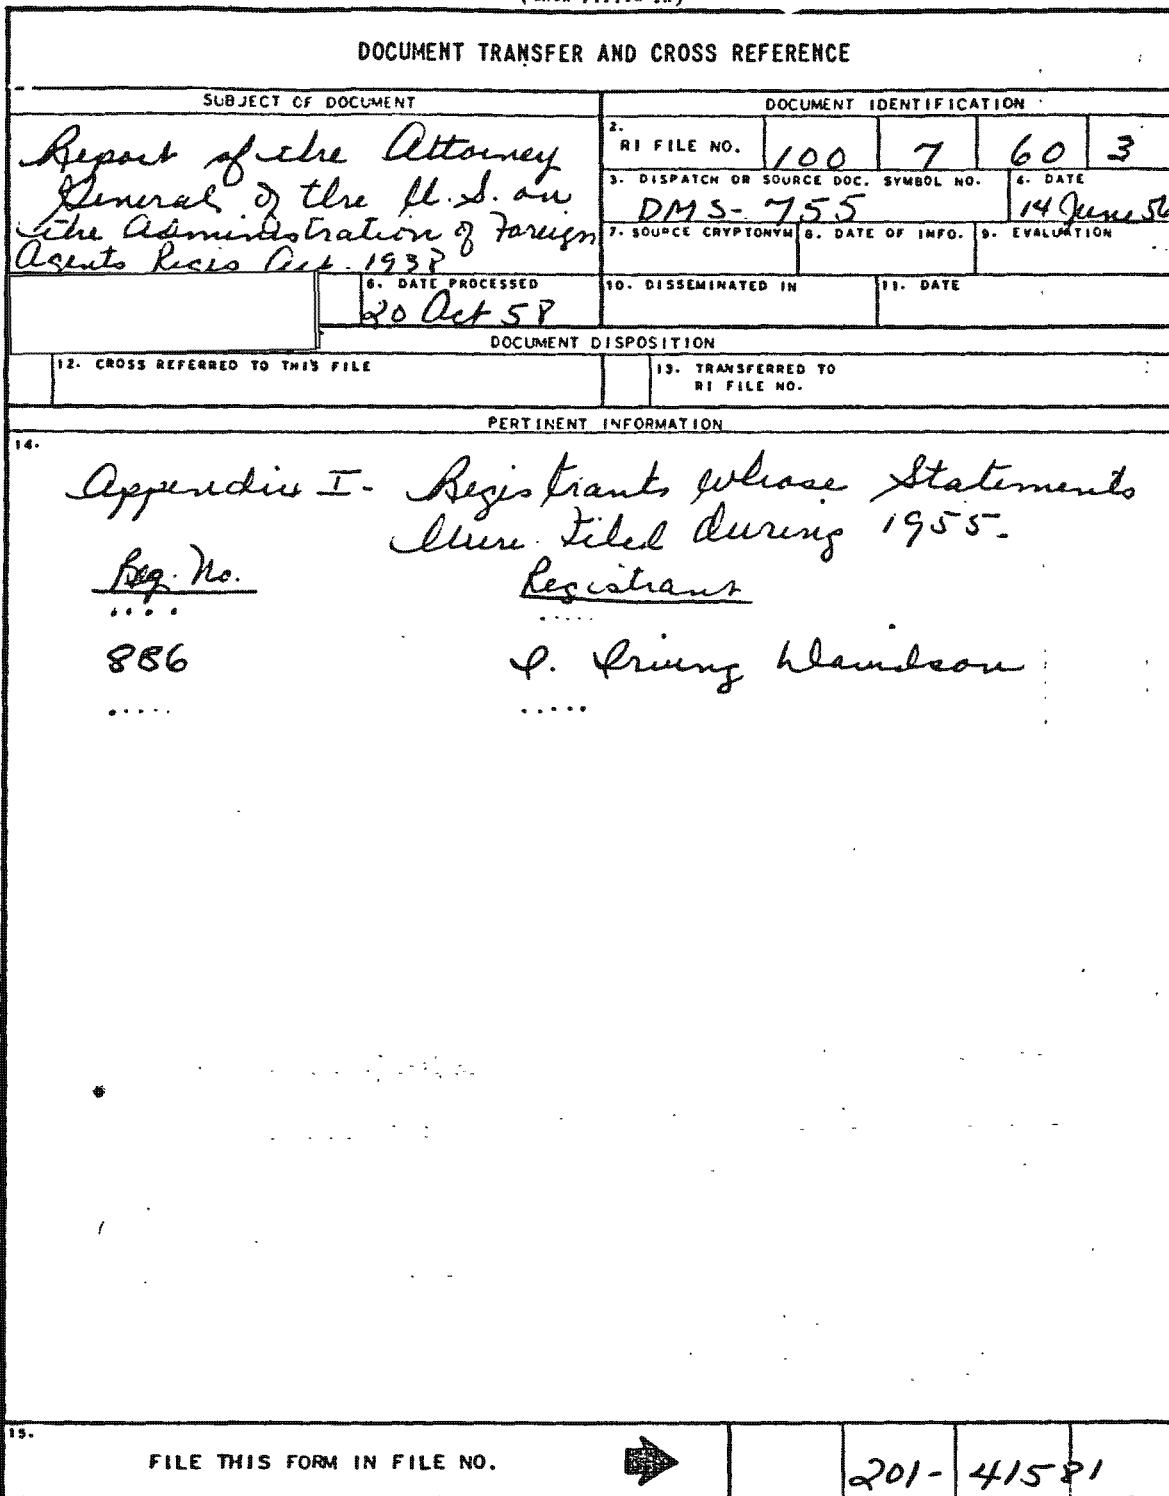 DOCUMENT TRANSFER AND CROSS REFERENCE
SUBJECT OF DOCUMENT
Report of the Attorney
General of the U.S. on
the Administration of Foreign
Agents Regis Act. 1938
6. DATE PROCESSED
20 Oct 58
DOCUMENT IDENTIFICATION
2. RI FILE NO. 100 7 60 3
3. DISPATCH OR SOURCE DOC. SYMBOL NO.
DMS-755
4. DATE
14 June 56
7. SOURCE CRYPTONYM
8. DATE OF INFO.
9. EVALUATION
10. DISSEMINATED IN
11. DATE
DOCUMENT DISPOSITION
12. CROSS REFERRED TO THIS FILE
13. TRANSFERRED TO
RI FILE NO.
PERTINENT INFORMATION
14.
Appendix I - Registrants whose Statements
Were Filed during 1955.
Reg. No. Registrant
.... .....
886 I. Irving Davidson
..... .....
15.
FILE THIS FORM IN FILE NO. 201-41581